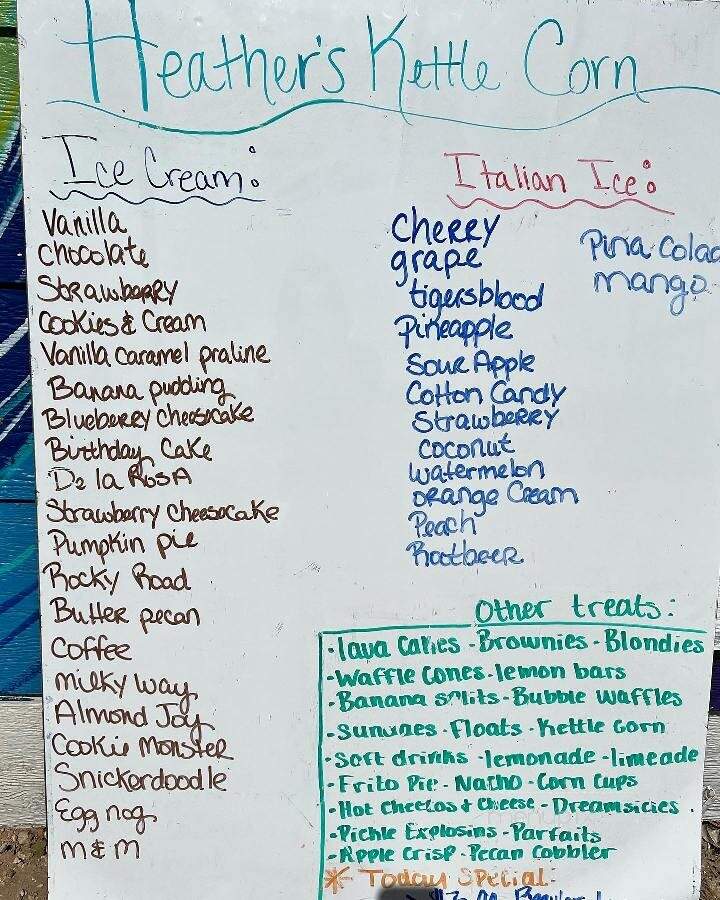 Heather's Kettle Corn
Ice Cream:
Vanilla
Chocolate
Strawberry
Cookies & Cream
Vanilla Caramel praline
Banana pudding
Blueberry Cheesecake
Birthday Cake
De la Rosa
Strawberry Cheesecake
Pumpkin pie
Rocky Road
Butter pecan
Coffee
Milky Way
Almond Joy
Cookie Monster
Snickerdoodle
Egg nog
M & M
Italian Ice:
Cherry
grape
tigersblood
Pineapple
Sour Apple
Cotton Candy
Strawberry
Coconut
Watermelon
Orange Cream
Peach
Rootbeer
Pina Colad
mango
Other treats:
·lava Cakes - Brownies - Blondies
-Waffle Cones - lemon bars
-Banana splits - Bubble Waffles
-Sundaes - Floats - Kettle Corn
·Soft drinks - lemonade - limeade
-Frito Pie - Nacho - Corn Cups
-Hot Cheetos & Cheese - Dreamsicles
-Pickle Explosins - Parfaits
-Apple Crisp - Pecan Cobbler
* Today Special: